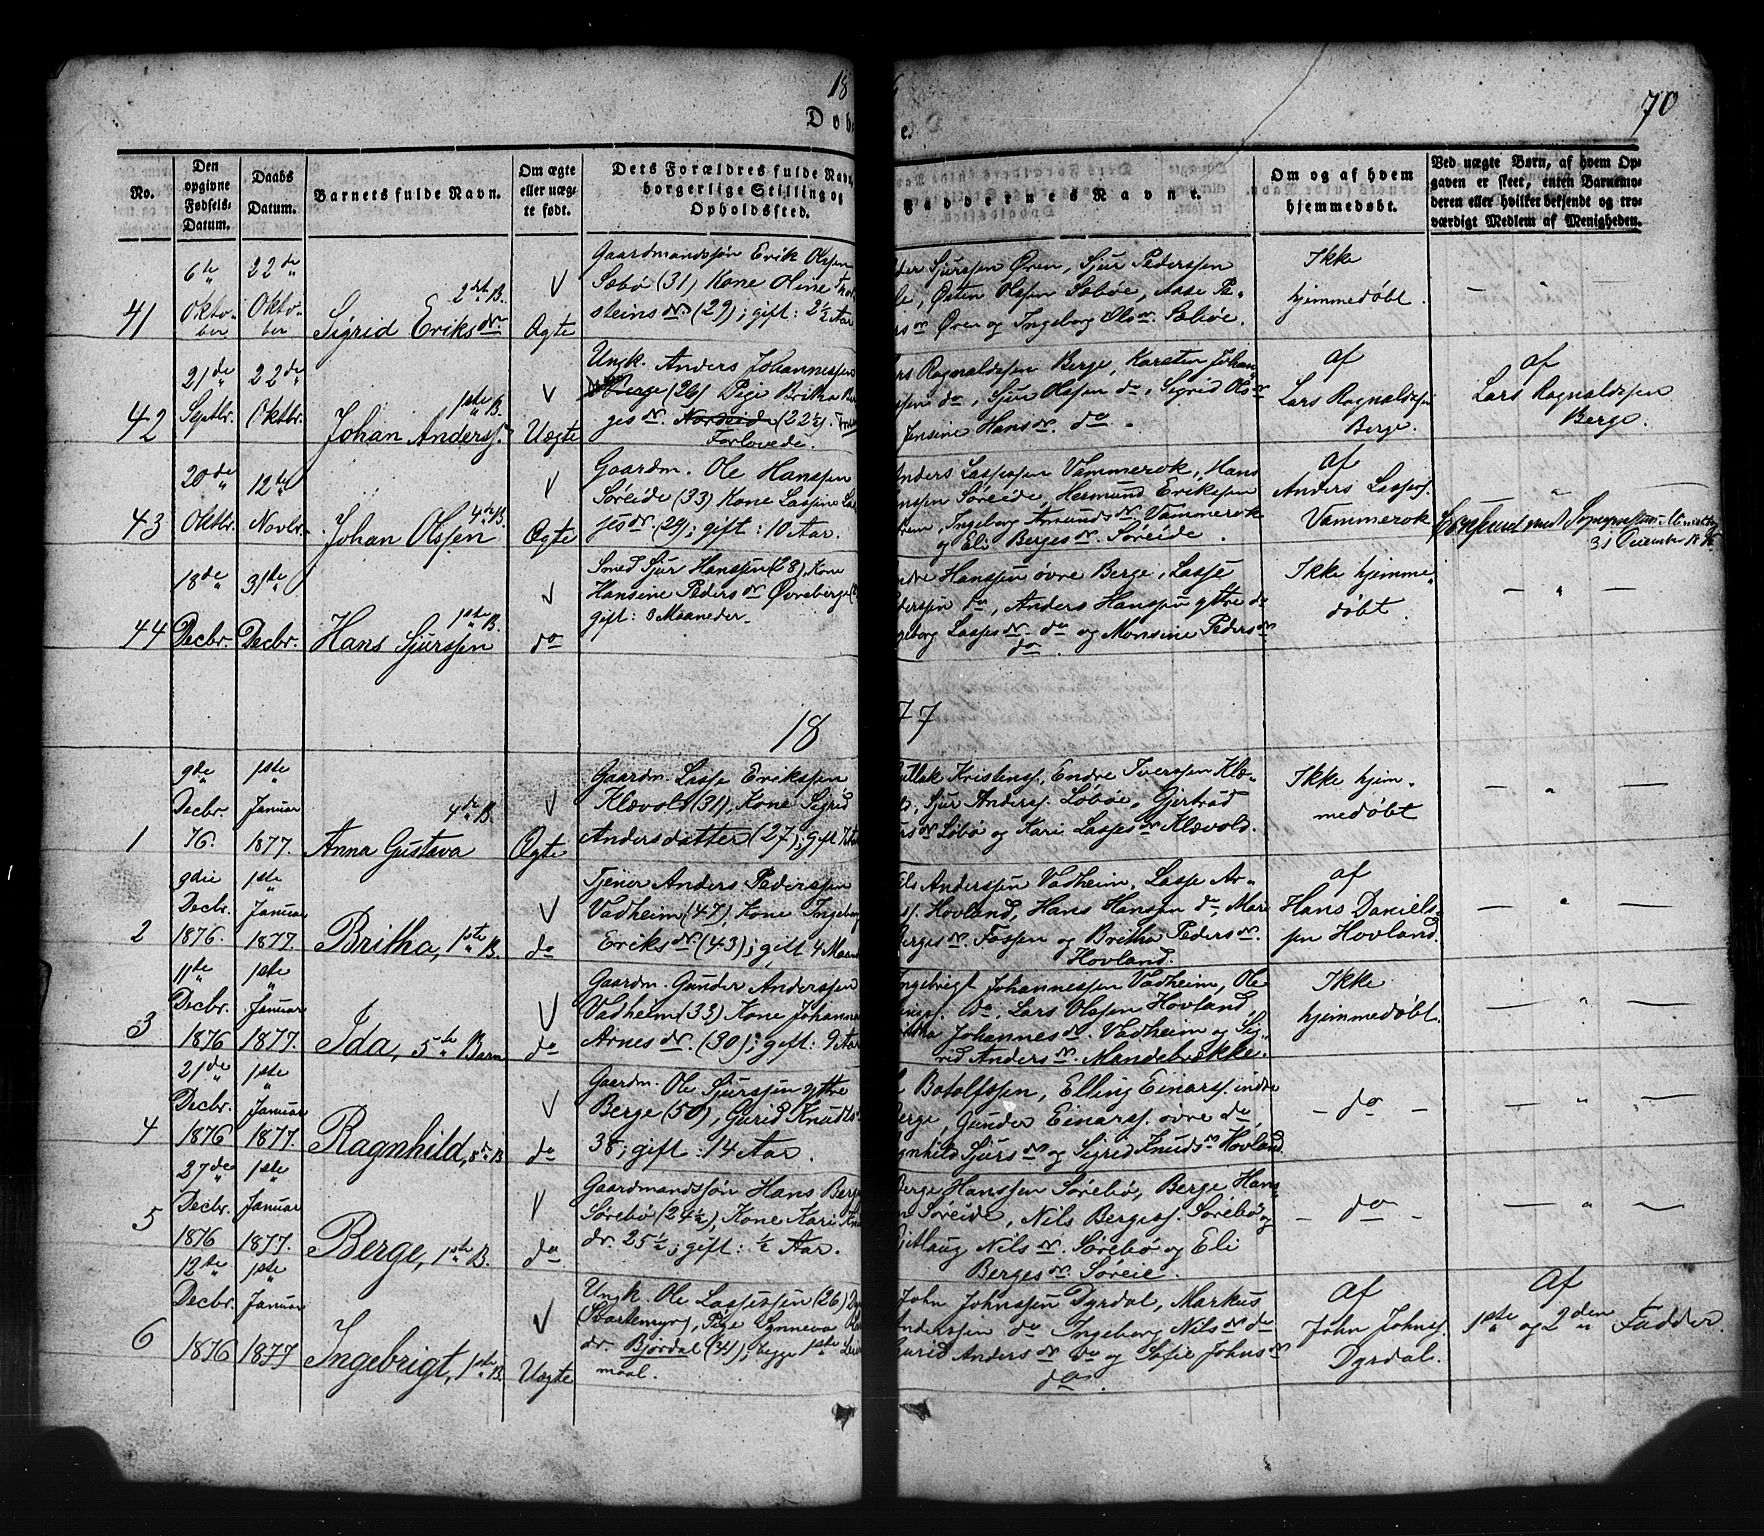 18
70
Døb
e.
No.
Den opgivne Fødsels-Datum.
Daabs Datum.
Barnets fulde Navn.
Om ægte eller uægte født.
Dets Forældres fulde Navn, borgerlige Stilling og Opholdssted.
Faddernes Navne.
Om og af hvem hjemmedøbt.
Ved uægte Børn, af hvem Opgaven er skeet, enten Barnemoderen eller hvilket bekjendt og troværdigt Medlem af Menigheden.
41
6te Oktober
22de Oktober
2det B.
Sigrid Eriksdr
Ægte
Gaardmandssøn Erik Olssen
Sæbø (31) Kone Oline
steinsdr. (29); gift: 2½ Aar
der Sjurssen Øren, Sjur Pederssen
Østen Olssen Sæbøe, Aase Pe-
Øren og Ingeborg Olsdr. Sæbøe.
Ikke
hjemmedøbt.
42
21de Septbr.
22de Oktbr.
1ste B.
Johan Anderss.
Uægte
Ungk. Anders Johannessen
Berge (26) Pige Britha Ber
gesdr. Nordeide (22½).
Forlovede.
Ragnaldssen Berge, Karsten Johan
do, Sjur Olssen do, Sigrid Olsdr
Jensine Hansdr. do.
af
Lars Ragnaldssen
Berge.
af
Lars Ragnaldssen
Berge.
43
20de Oktbr.
12te Novbr.
4de B.
Johan Olssen
Ægte
Gaardm. Ole Hanssen
Søreide (33) Kone Lassine Las
sesdr. (29); gift: 10 Aar.
Anders Lassessen Vammerok, Hans
Søreide, Hermund Erikssen
Ingeborg Amundsdr. Vammerok
og Eli Bergesdr. Søreide.
af
Anders Lassess.
Vammerok
44
18de Decbr.
31te Decbr.
1ste B.
Hans Sjurssen
do
Smed Sjur Hanssen (28), Kone
Hansine Pedersdr Øvreberge
gift: 3 Maaneder.
Hanssen øvre Berge, Lasse
do, Anders Hanssen yttre do
Lassesdr. do og Monsine Pedersdr
do.
Ikke hjemme
døbt.
18
77
1
9de Decbr. 76.
1ste Januar 1877.
4de B.
Anna Gustava
Ægte
Gaardm. Lasse Erikssen
Klævold (31), Kone Sigrid
Andersdatter (27); gift
Kristenss. Endre Iverssen Klæ-
Sjur Anderss. Løbøe, Gjertrud
Løbø og Kari Lassesdr Klævold.
Ikke hjem-
medøbt
2
9die Decbr. 1876.
1ste Januar 1877.
Britha, 1ste B.
do
Tjener Anders Pederssen
Vadheim (47), Kone Ingeborg
Eriksdr. (43); gift 4 Maan
Anderssen Vadheim, Lasse Ar-
Hovland, Hans Hanssen do, Mari
Bergesdr. Fossen og Britha Pedersdr.
Hovland.
af
Hans Daniels-
sen Hovland.
3
11te Decbr. 1876
1ste Januar 1877.
Ida, 5te Barn
do
Gaardm. Gunder Anderssen
Vadheim (33) Kone Johanna
Arnesdr. (30); gift: 9 Aar
Ingebrigt Johannessen Vadheim, Ole
do, Lars Olssen Hovland,
Johannesdr. Vadheim og Sig-
rid Andersdr. Mandebrekke.
Ikke
hjemmedøbt.
4
21de Decbr. 1876
1ste Januar 1877.
Ragnhild, B
do
Gaardm. Ole Sjurssen yttre
Berge (50), Gurid Knuds
38; gift: 14 Aar.
Botolfssen, Elling Einarss. indre
Berge, Gunder Einarss. øvre do,
Ragnhild Sjursdr og Sigrid Knudsdr Hovland.
- do -
5
27de Decbr. 1876
1ste Januar 1877.
Berge, 1ste B.
do
Gaardmandssøn Hans Berge
Sørebø (24½), Kone Kari
dr. 25½; gift: ½ Aar.
Berge Hanssen Sørebø, Berge Hans
Søreide, Nils Bergess. Sørebø og
Nilsdr. Sørebø og Eli
Bergesdr. Søreie.
- do -
6
12te Decbr. 1876
1ste Januar 1877
Ingebrigt, 1ste B.
Uægte
Ungk. Ole Lassessen (26)
Svartemyr, Pige Synneva
dr. Bjørdal (34); begge 1ste Leier
maal.
John Johnssen Dyrdal, Markus
Anderssen do Ingeborg Nilsdr do
Gurid Andersdr do og Sofie Johnsdr
do.
Af
John Johnss.
Dyrdal.
Af
1ste og 2den Fadder.